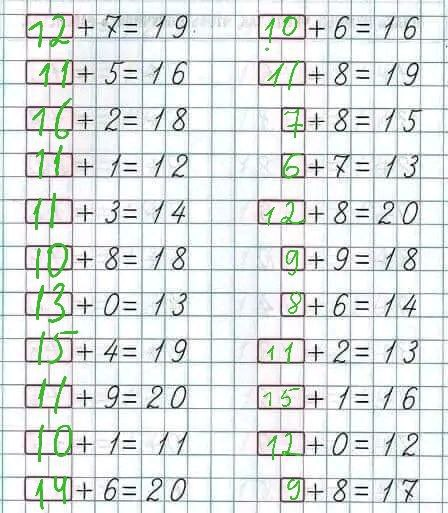 12 + 7 = 19 10 + 6 = 16
11 + 5 = 16 11 + 8 = 19
16 + 2 = 18 7 + 8 = 15
11 + 1 = 12 6 + 7 = 13
11 + 3 = 14 12 + 8 = 20
10 + 8 = 18 9 + 9 = 18
13 + 0 = 13 8 + 6 = 14
15 + 4 = 19 11 + 2 = 13
11 + 9 = 20 15 + 1 = 16
10 + 1 = 11 12 + 0 = 12
14 + 6 = 20 9 + 8 = 17